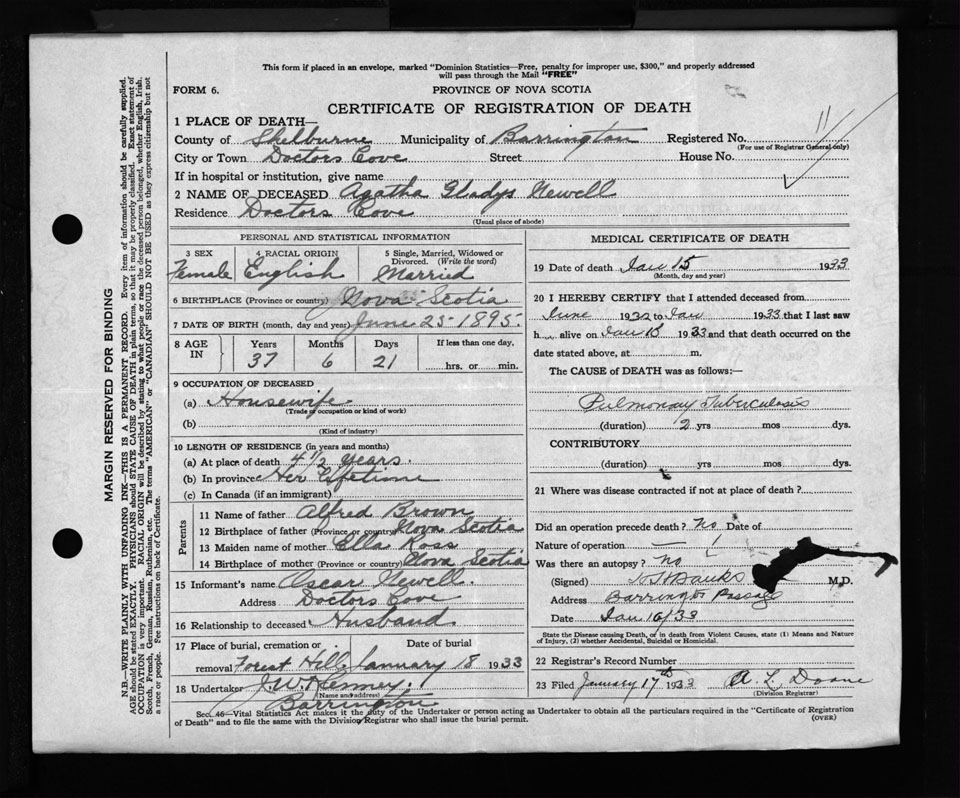 This form if placed in an envelope, marked "Dominion Statistics—Free, penalty for improper use, $300," and properly addressed
will pass through the Mail "FREE"
FORM 6.
PROVINCE OF NOVA SCOTIA
CERTIFICATE OF REGISTRATION OF DEATH
1 PLACE OF DEATH—
County of Shelburne Municipality of Barrington Registered No. 11
(For use of Registrar General only)
City or Town Doctors Cove Street House No.
If in hospital or institution, give name
2 NAME OF DECEASED Agatha Gladys Newell
Residence Doctors Cove
(Usual place of abode)
PERSONAL AND STATISTICAL INFORMATION
3 SEX 4 RACIAL ORIGIN 5 Single, Married, Widowed or Divorced. (Write the word)
Female English Married
6 BIRTHPLACE (Province or country) Nova Scotia
7 DATE OF BIRTH (month, day and year) June 25-1895.
8 AGE IN Years Months Days If less than one day,
37 6 21 hrs. or min.
9 OCCUPATION OF DECEASED
(a) Housewife
(Trade or occupation or kind of work)
(b)
(Kind of industry)
10 LENGTH OF RESIDENCE (in years and months)
(a) At place of death 4 1/2 years.
(b) In province Her Lifetime
(c) In Canada (if an immigrant)
Parents
11 Name of father Alfred Brown
12 Birthplace of father (Province or country) Nova Scotia
13 Maiden name of mother Ella Ross
14 Birthplace of mother (Province or country) Nova Scotia
15 Informant's name Oscar Newell.
Address Doctors Cove
16 Relationship to deceased Husband.
17 Place of burial, cremation or removal Date of burial
Forest Hill. January 18 1933
18 Undertaker J. W. Kenney.
(Name and address)
Barrington
MEDICAL CERTIFICATE OF DEATH
19 Date of death Jan 15 1933
(Month, day and year)
20 I HEREBY CERTIFY that I attended deceased from
June 1932 to Jan 1933 that I last saw
h alive on Jan 13 1933 and that death occurred on the
date stated above, at m.
The CAUSE of DEATH was as follows:—
Pulmonary Tuberculosis
(duration) 2 yrs mos dys.
CONTRIBUTORY
(duration) yrs mos dys.
21 Where was disease contracted if not at place of death?
Did an operation precede death? No Date of
Nature of operation —
Was there an autopsy? No
(Signed) Banks M.D.
Address Barrington Passage
Date Jan 16/33
State the Disease causing Death, or in death from Violent Causes, state (1) Means and Nature
of Injury, (2) whether Accidental, Suicidal or Homicidal.
22 Registrar's Record Number
23 Filed January 17th 1933 A. L. Doane
(Division Registrar)
Sec. 46—Vital Statistics Act makes it the duty of the Undertaker or person acting as Undertaker to obtain all the particulars required in the "Certificate of Registration
of Death" and to file the same with the Division Registrar who shall issue the burial permit.
(OVER)
MARGIN RESERVED FOR BINDING
N.B.—WRITE PLAINLY WITH UNFADING INK—THIS IS A PERMANENT RECORD. Every item of information should be carefully supplied.
AGE should be stated EXACTLY. PHYSICIANS should STATE CAUSE OF DEATH in plain terms, so that it may be properly classified. Exact statement of
OCCUPATION is very important. RACIAL ORIGIN will be described by stating to what people or race the deceased person belonged, whether English, Irish,
Scotch, French, German, Russian, Ruthenian, etc. The terms "AMERICAN" or "CANADIAN" SHOULD NOT BE USED as they express citizenship but not
a race or people. Fee instructions on back of Certificate.